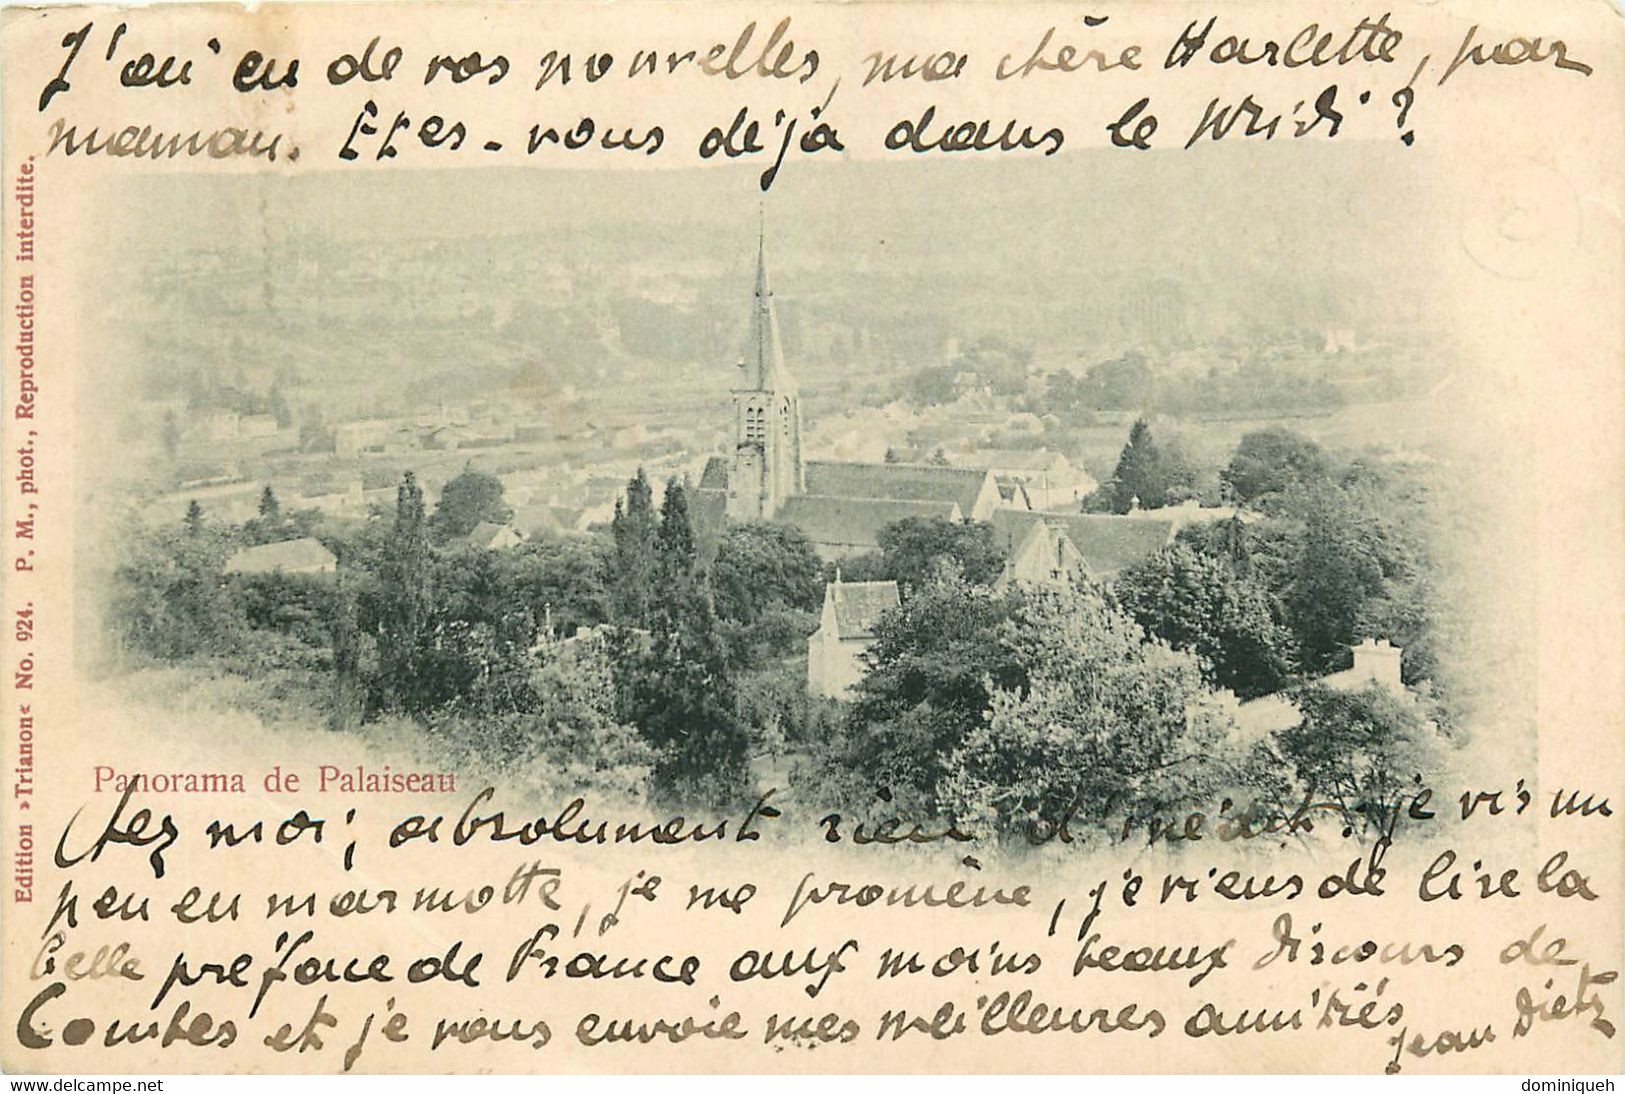 J'ai eu de vos nouvelles, ma chère Harlette, par
maman. Etes-vous déjà dans le Midi ?
Edition »Trianon« No. 924. P. M., phot., Reproduction interdite.
Panorama de Palaiseau
Chez moi, absolument rien d'inédit : je vis un
peu en marmotte, je me promène, je viens de lire la
belle préface de France aux moins beaux discours de
Combes et je vous envoie mes meilleures amitiés
Jean Dietz
delcampe.net
dominiqueh